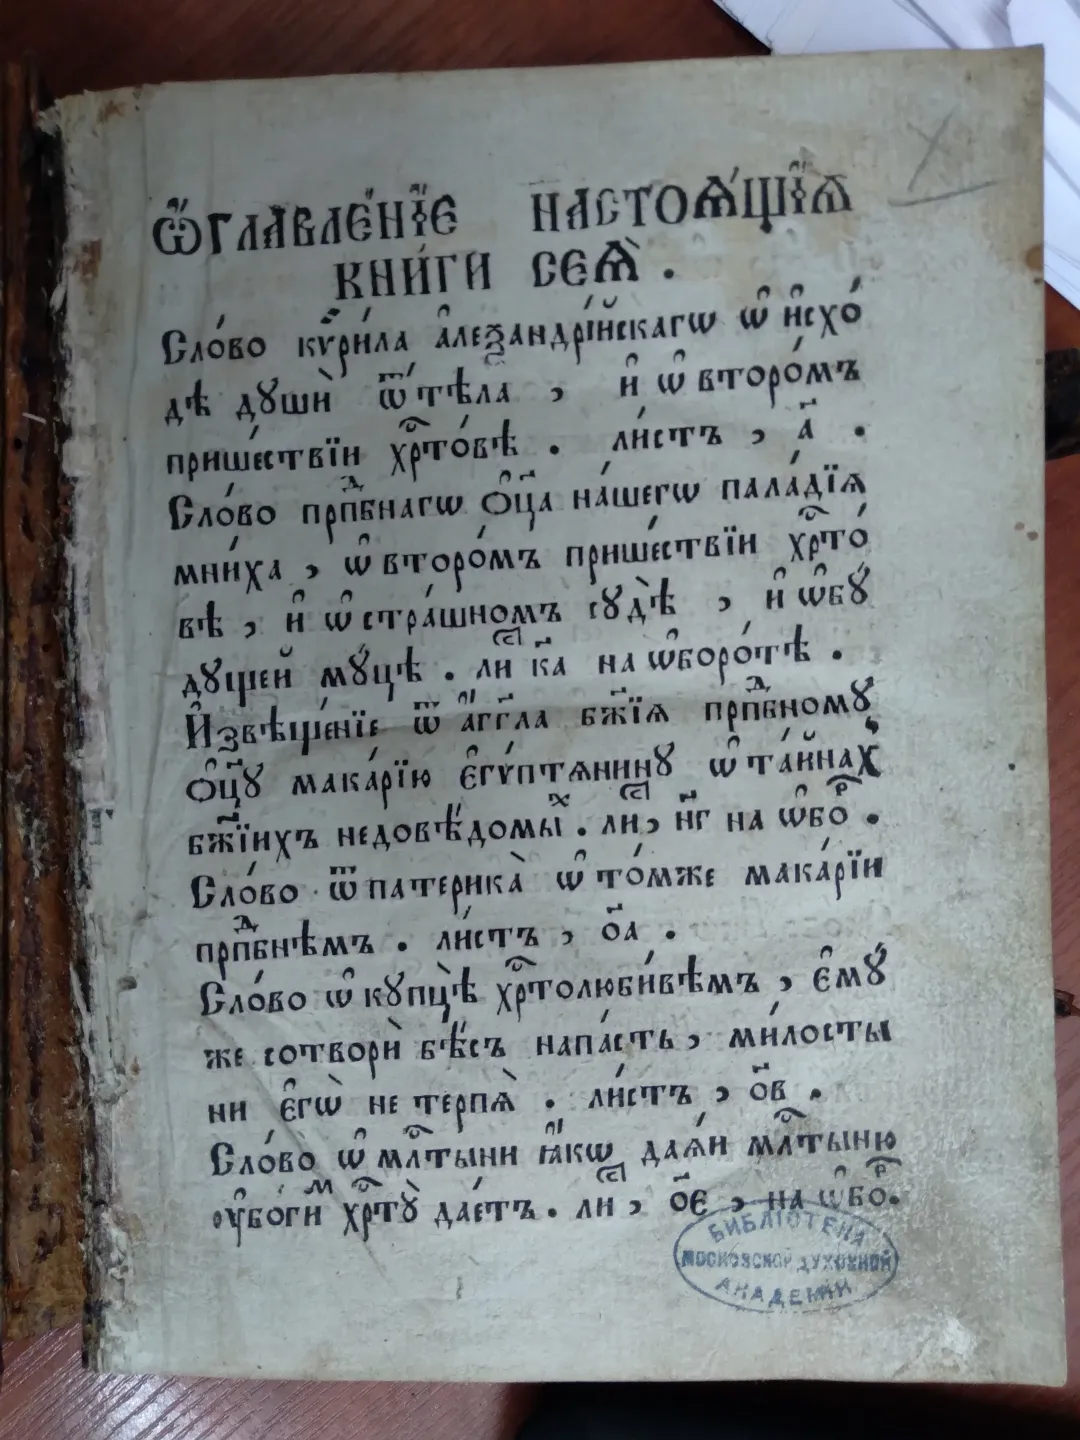 Ѡ҆́главле́нїе настоѧ́щїѧ
кни́ги сеѧ̀ .
Сло́во кѷри́ла а҆леѯандрі́йскагѡ ѡ҆ и҆схо́
дѣ дꙋшѝ ѿ тѣ́ла , и҆ ѡ҆ второ́мъ
прише́ствїи хрⷭ҇то́вѣ . ли́стъ , а҃ .
Сло́во прпⷣбнагѡ ѻ҆ц҃а на́шегѡ пала́дїѧ
мни́ха , ѡ҆ второ́мъ прише́ствїи хрⷭ҇то́
вѣ , и҆ ѡ҆ стра́шномъ сꙋдѣ̀ , и҆ ѡ҆ бꙋ́
дꙋщей мꙋ́цѣ . лиⷭ҇ к҃а на ѡ҆боро́тѣ .
И҆звѣще́нїе ѿ а҆́гг҃ла бж҃їѧ прпⷣбномꙋ́
ѻ҆ц҃ꙋ̀ мака́рїю є҆гѵ́птѧнинꙋ ѡ҆ та́йнаⷯ
бж҃їихъ недовѣ́домыⷯ . лиⷭ҇, н҃г на ѡ҆боⷬ҇ .
Сло́во ѿ патерика̀ ѡ҆ то́мже мака́рїи
прпⷣбнѣмъ . ли́стъ , ѻ҃а .
Сло́во ѡ҆ кꙋпцѣ̀ хрⷭ҇толюби́вѣмъ , є҆мꙋ́
же сотворѝ бѣ́съ напа́сть , ми́лосты
ни є҆гѡ̀ не терпѧ̀ . ли́стъ , ѻ҃в .
Сло́во ѡ҆ млⷭ҇тыни ꙗ҆́кѡ даѧ́и млⷭ҇тыню
ᲂу҆бо́гиⷨ хрⷭ҇тꙋ̀ дае́тъ . лиⷭ҇ , ѻ҃є , на ѡ҆боⷬ҇.
БИБЛІОТЕКА
МОСКОВСКОЙ ДУХОВНОЙ
АКАДЕМІИ